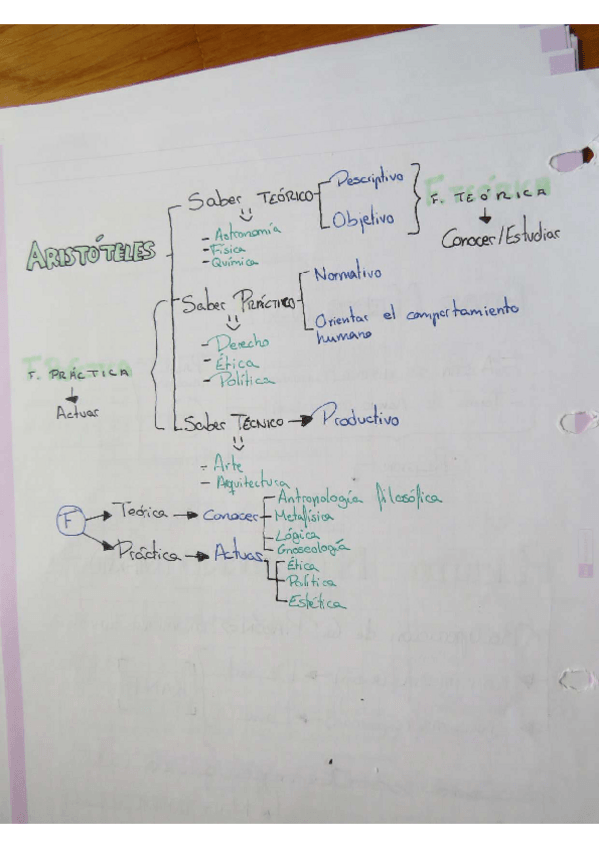 ARISTÓTELES
Saber TEÓRICO
- Astronomía
- Física
- Química
Descriptivo
Objetivo
F. TEÓRICA
Conocer/Estudiar
Saber PRÁCTICO
- Derecho
- Ética
- Política
Normativo
Orientar el comportamiento
humano
F. PRÁCTICA
Actuar
Saber TÉCNICO → Productivo
- Arte
- Arquitectura
F
Teórica → Conocer
Antropología filosófica
Metafísica
Lógica
Gnoseología
Práctica → Actuar
Ética
Política
Estética